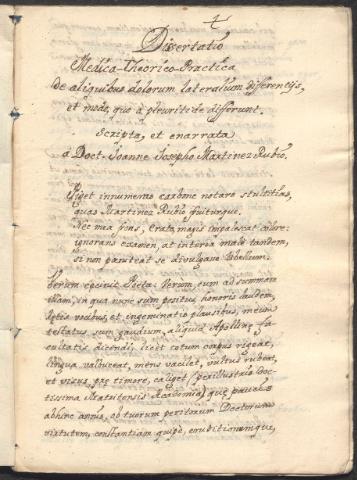 4
Dissertatio
Medica-Theorico-Practica
de aliquibus dolorum lateralium differentijs,
et modo, quo a pleuritide differunt.
Scripta, et enarrata
â Doct. Joanne Josepho Martinez Rubio.
Piget innumeno carbone notare stultitias,
quas Martinez Rubio
Nec mea frons, Erata magis impalescat
ignorans examen, at interea male tandem,
si non paniteat se divulgare libellum.
Verum Poeta: Verum, cum ad summam
illam, in qua nunc sum positus honoris laudem,
letis vocibus, et ingeminatio plausibus, meum
testatus sum gaudium, aliquid Apolline, fa
cultatis dicendi, licet totum corpus rigeat,
lingua balbuceat, mens vacilet, vultus rubeat,
et visus, pre timore, caliget (perillustris Doc
tissima Matritensis Academia) que paucis
abhinc annis, ob tuorum peritorum Doctorum
virtutem, constantiam quipe, eruditionemque,